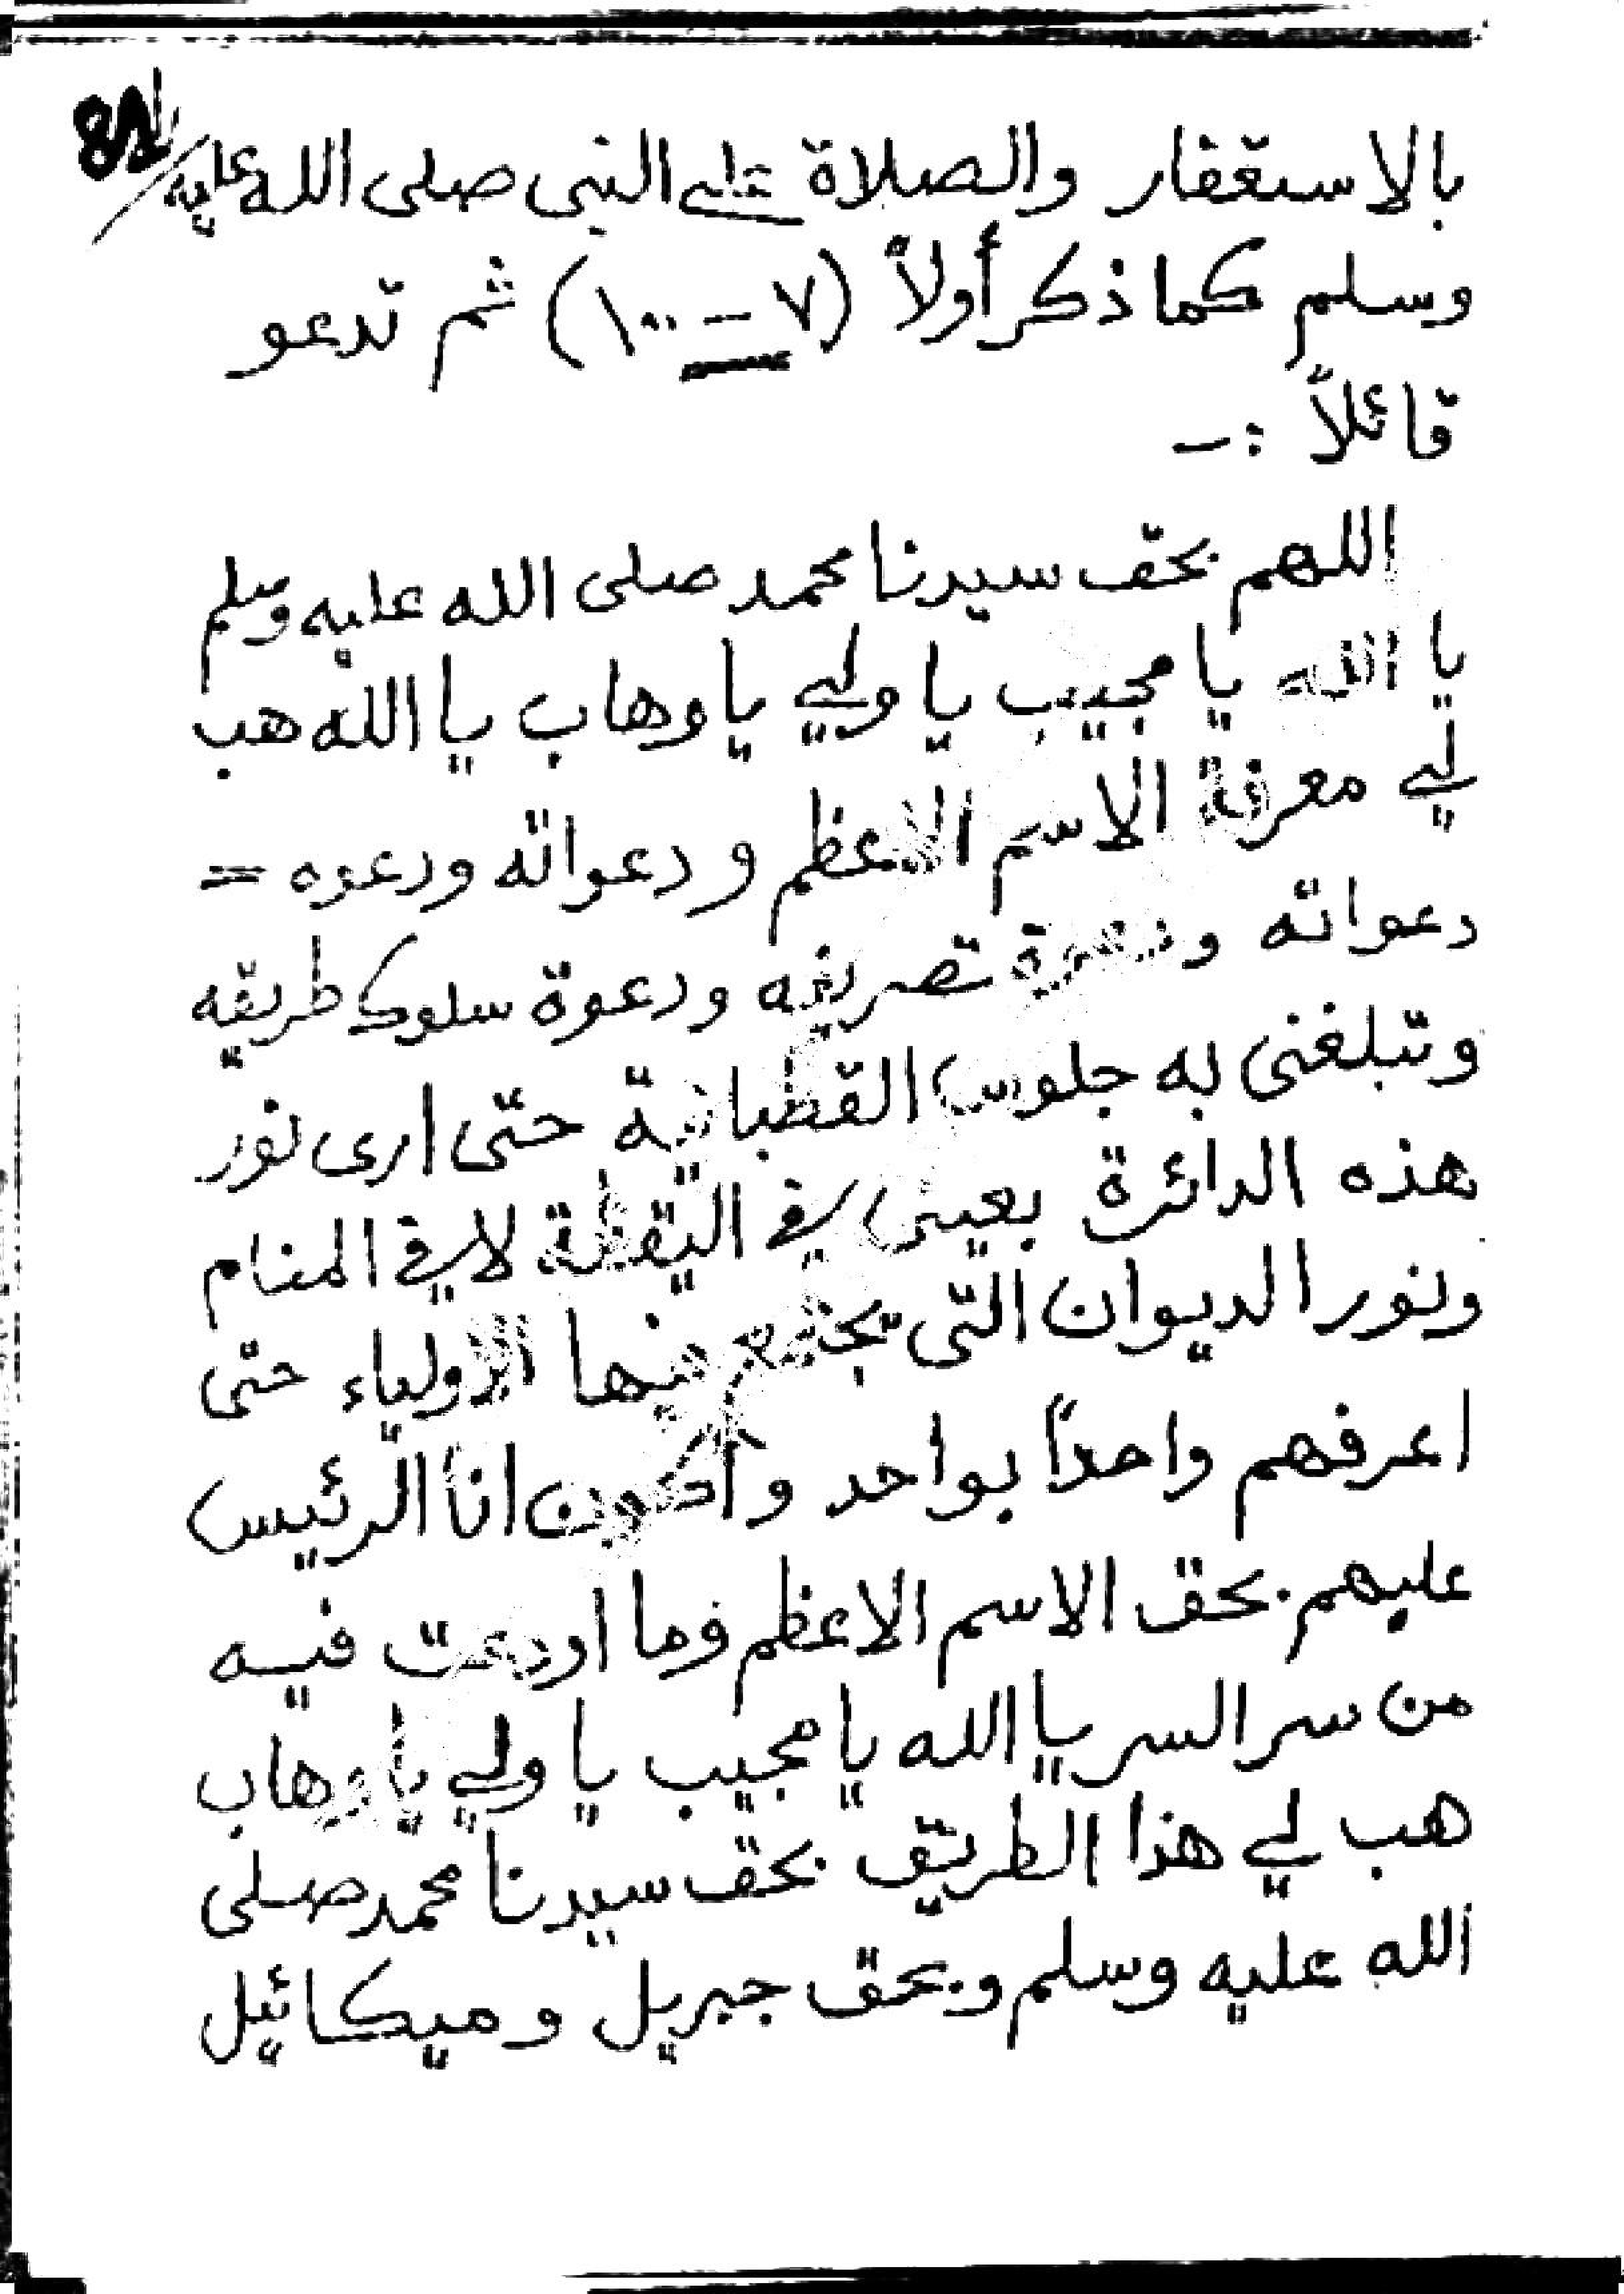 بالاستغفار والصلاة على النبي صلى الله عليه
وسلم كما ذكر أولاً (٧ - ١٠٠) ثم تدعو
قائلاً :-
اللهم بحق سيدنا محمد صلى الله عليه وسلم
يا الله يا مجيب يا ولي يا وهاب يا الله هب
لي معرفة الاسم الاعظم ودعواته ودعوه =
دعواته ودعوة تصريفه ودعوة سلوك طريقه
وتبلغنى به جلوس القطبانية حتى ارى نور
هذه الدائرة بعينى في اليقظة لا في المنام
ونور الديوان التى يجتمع فيها الاولياء حتى
اعرفهم واحداً بواحد وأكون انا الرئيس
عليهم بحق الاسم الاعظم وما اودعت فيه
من سر السر يا الله يا مجيب يا ولي يا وهاب
هب لي هذا الطريق بحق سيدنا محمد صلى
الله عليه وسلم وبحق جبريل وميكائيل